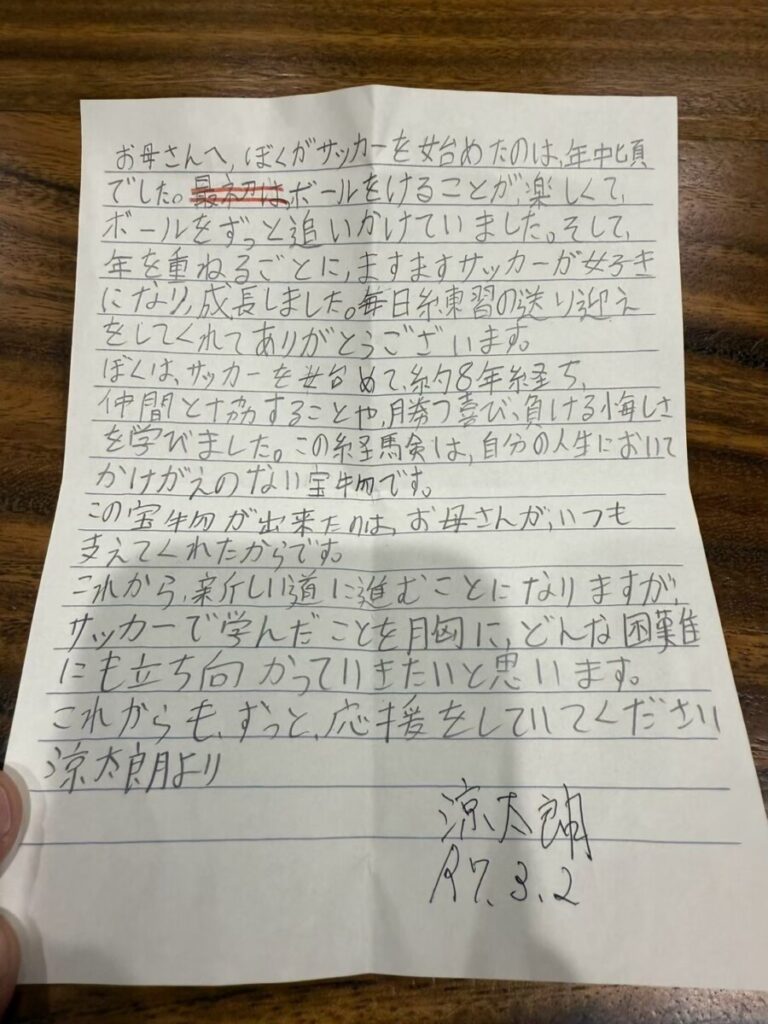 お母さんへ、ぼくがサッカーを始めたのは、年中頃
でした。最初は、ボールをけることが、楽しくて、
ボールをずっと追いかけていました。そして、
年を重ねるごとに、ますますサッカーが好き
になり、成長しました。毎日練習の送り迎え
をしてくれてありがとうございます。
ぼくは、サッカーを始めて、約8年経ち、
仲間と協することや、勝つ喜び、負ける悔しさ
を学びました。この経験は、自分の人生において
かけがえのない宝物です。
この宝物が出来たのは、お母さんが、いつも
支えてくれたからです。
これから、新しい道に進むことになりますが、
サッカーで学んだことを胸に、どんな困難
にも立ち向かっていきたいと思います。
これからも、ずっと、応援をしていてください
涼太朗より
涼太朗
R7.3.2